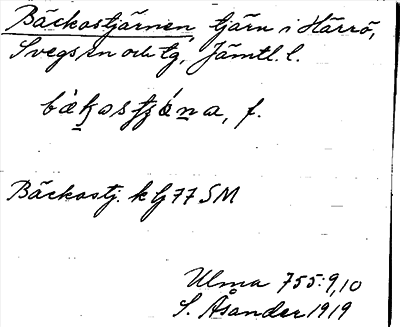 Bäckostjärnen, tjärn i Härrö,
Svegs sn och tg, Jämtl. l.
f.
Bäckostj. k lj 77 SM
Ulma 755:9,10
S. Åsander 1919